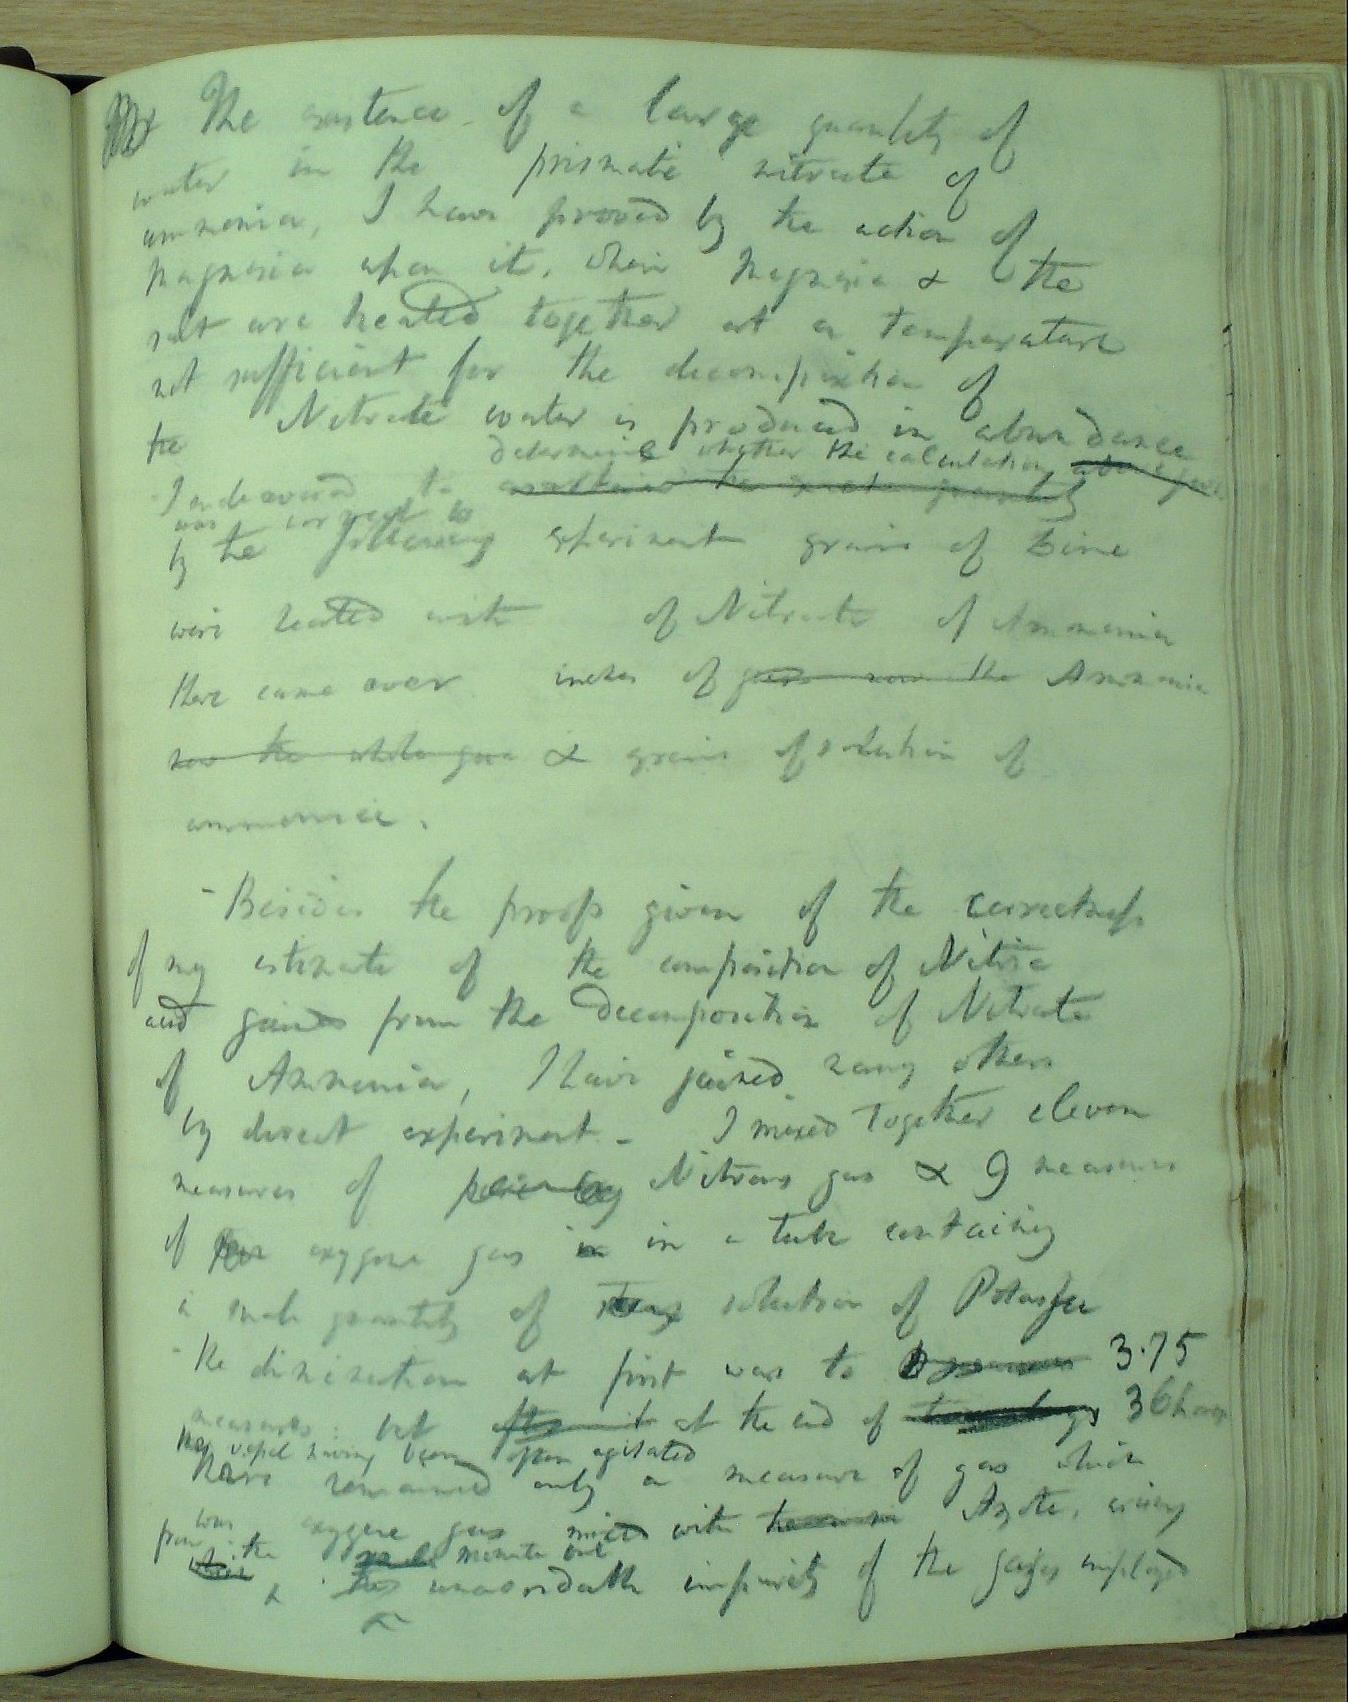 The existence of a large quantity of
water in the prismatic nitrate of
ammonia, I have proved by the action of
Magnesia upon it, when Magnesia & the
salt are heated together at a temperature
not sufficient for the decomposition of
the Nitrate water is produced in abundance
determine whether the calculation
I endeavored to ascertain the exact quantity
was correct
by the following experiment grains of Lime
were heated with of Nitrate of Ammonia
there came over inches of gas now the Ammonia
now the whole gave & grains of solution of
ammonia.
- Besides the proofs given of the correctness
of my estimate of the composition of Nitric
acid gained from the Decomposition of Nitrate
of Ammonia, I have gained many others
by direct experiment - I mixed Together eleven
measures of Nitrous gas & 9 measures
of oxygene gas in in a tube containing
a small quantity of strong solution of Potassa
- the diminution at first was to 3.75
measures but at the end of 36 hours
the vessel having been often agitated
there remained only a measure of gas which
was oxygene gas mixed with Azote, arising
from the minute and
which & the unavoidable impurity of the gases employed